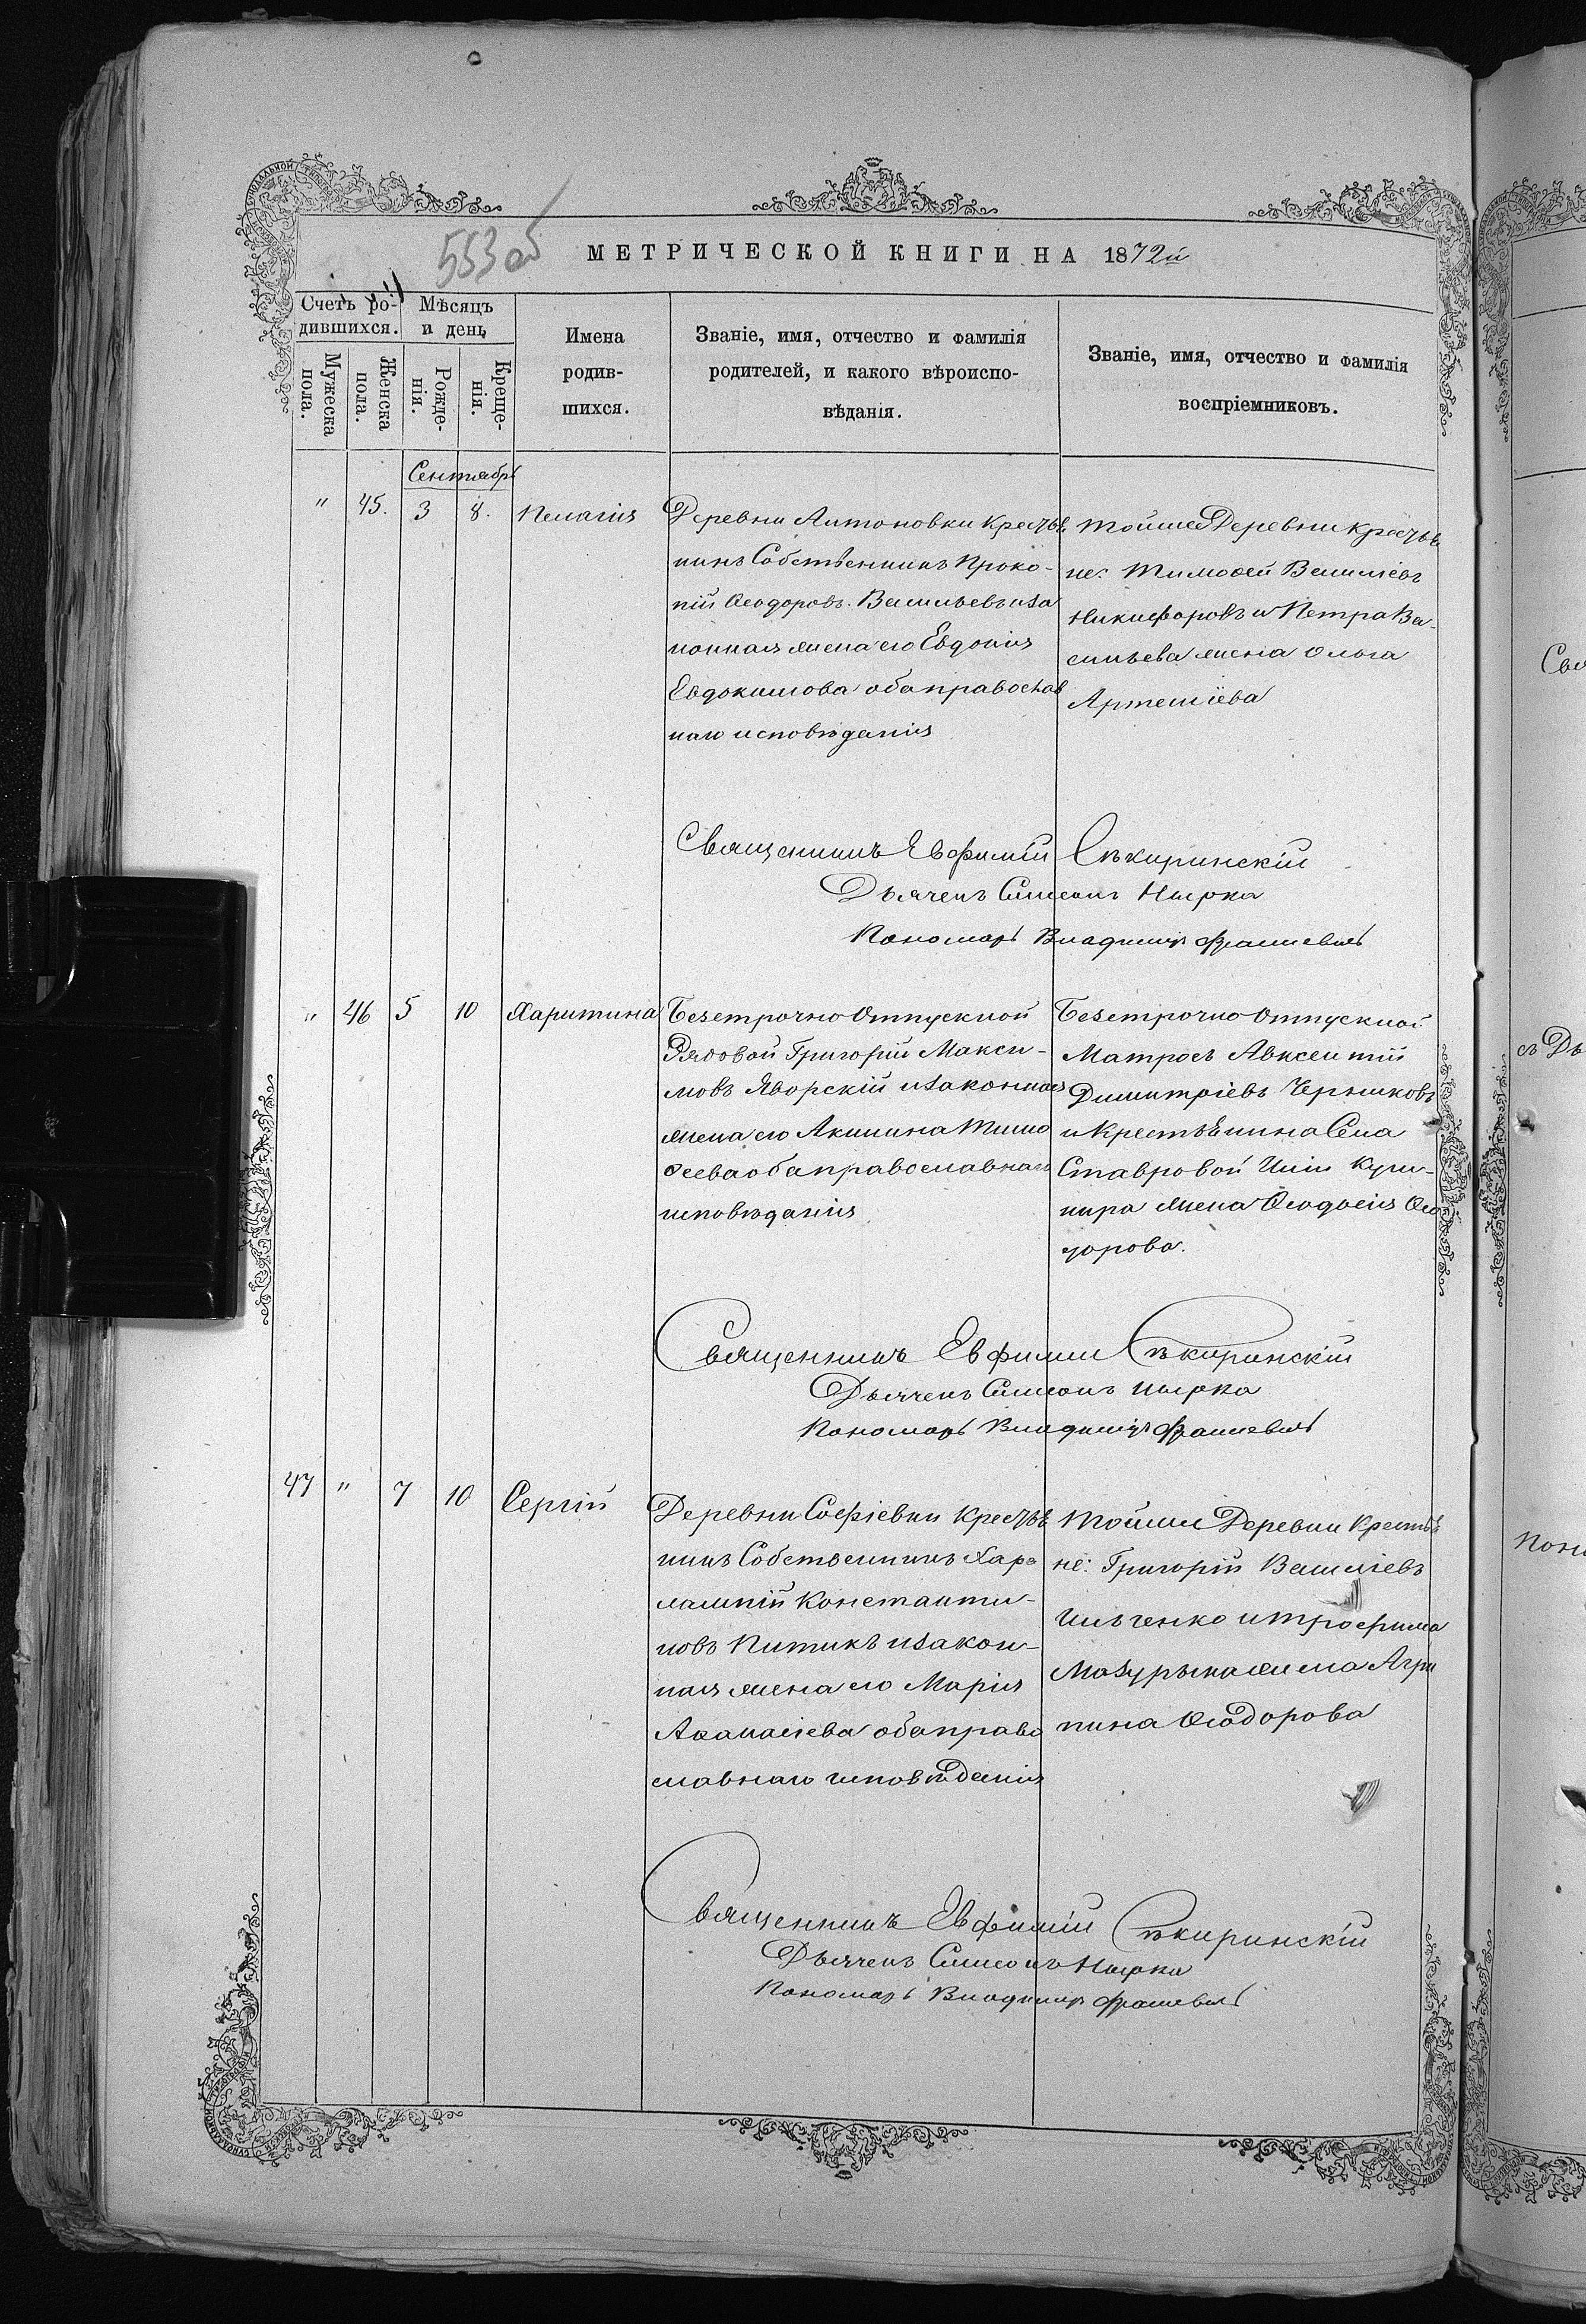 553 об
МЕТРИЧЕСКОЙ КНИГИ НА 1872й
Счетъ ро-
дившихся.
Мѣсяцъ
и день
Мужеска
пола.
Женска
пола.
Рожде-
нія.
Креще-
нія.
Имена
родив-
шихся.
Званіе, имя, отчество и фамилія
родителей, и какого вѣроиспо-
вѣданія.
Званіе, имя, отчество и фамилія
воспріемниковъ.
Сентябрь
" 45. 3 8. Пелагія
Деревни Антоновки Крестья
нинъ Собственникъ Проко-
пій Ѳеодоровъ Васильевъ и за
конная жена его Евдокія
Евдокимова оба православ
наго исповѣданія
Тойже Деревни Крестья
не: Тимоѳей Василіевъ
Никифоровъ и Петра Ва-
сильева жена Ольга
Артеміева
Священникъ Евфимій Сѣкиринскій
Дьячекъ Симеонъ Нырка
Пономарь Владимір
" 46 5 10 Харитина
Безсрочно Отпускной
Рядовой Григорій Макси-
мовъ Яворскій и законная
жена его Акилина Тимо
ѳеева оба православнаго
исповѣданія
Безсрочно Отпускной
Матросъ Авксентій
Димитріевъ Черниковъ
и Крестьянина Села
Ставровой Иліи
жена Ѳеодосія Ѳео
дорова.
Священникъ Евфимій Сѣкиринскій
Дьячекъ Симеонъ Нырка
Пономарь Владимір
47 " 7 10 Сергій
Деревни Софіевки Крестья
нинъ Собственникъ Хара
лампій Константи-
новъ Питикъ и закон-
ная жена его Марія
Аѳанасіева оба право
славнаго исповѣданія
Тойже Деревни Крестья
не: Григорій Василіевъ
Ильченко и Трофима
Мазурыка жена Агри
пина Ѳеодорова
Священникъ Евфимій Сѣкиринскій
Дьячекъ Симеонъ Нырка
Пономарь Владимір